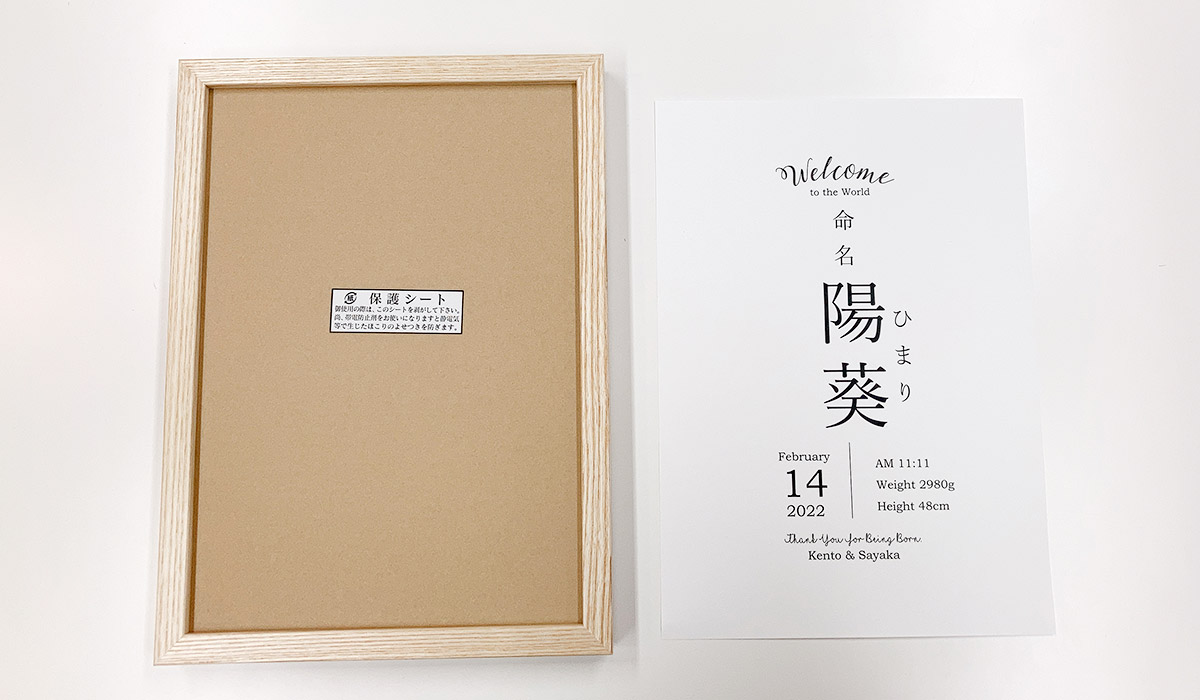 紙 保護シート
御使用の際は、このシートを剥がして下さい。
尚、帯電防止剤をお使いになりますと静電気
等で生じたほこりのよせつきを防ぎます。
Welcome
to the World
命名
陽葵
ひまり
February
14
2022
AM 11:11
Weight 2980g
Height 48cm
Thank You for Being Born.
Kento & Sayaka